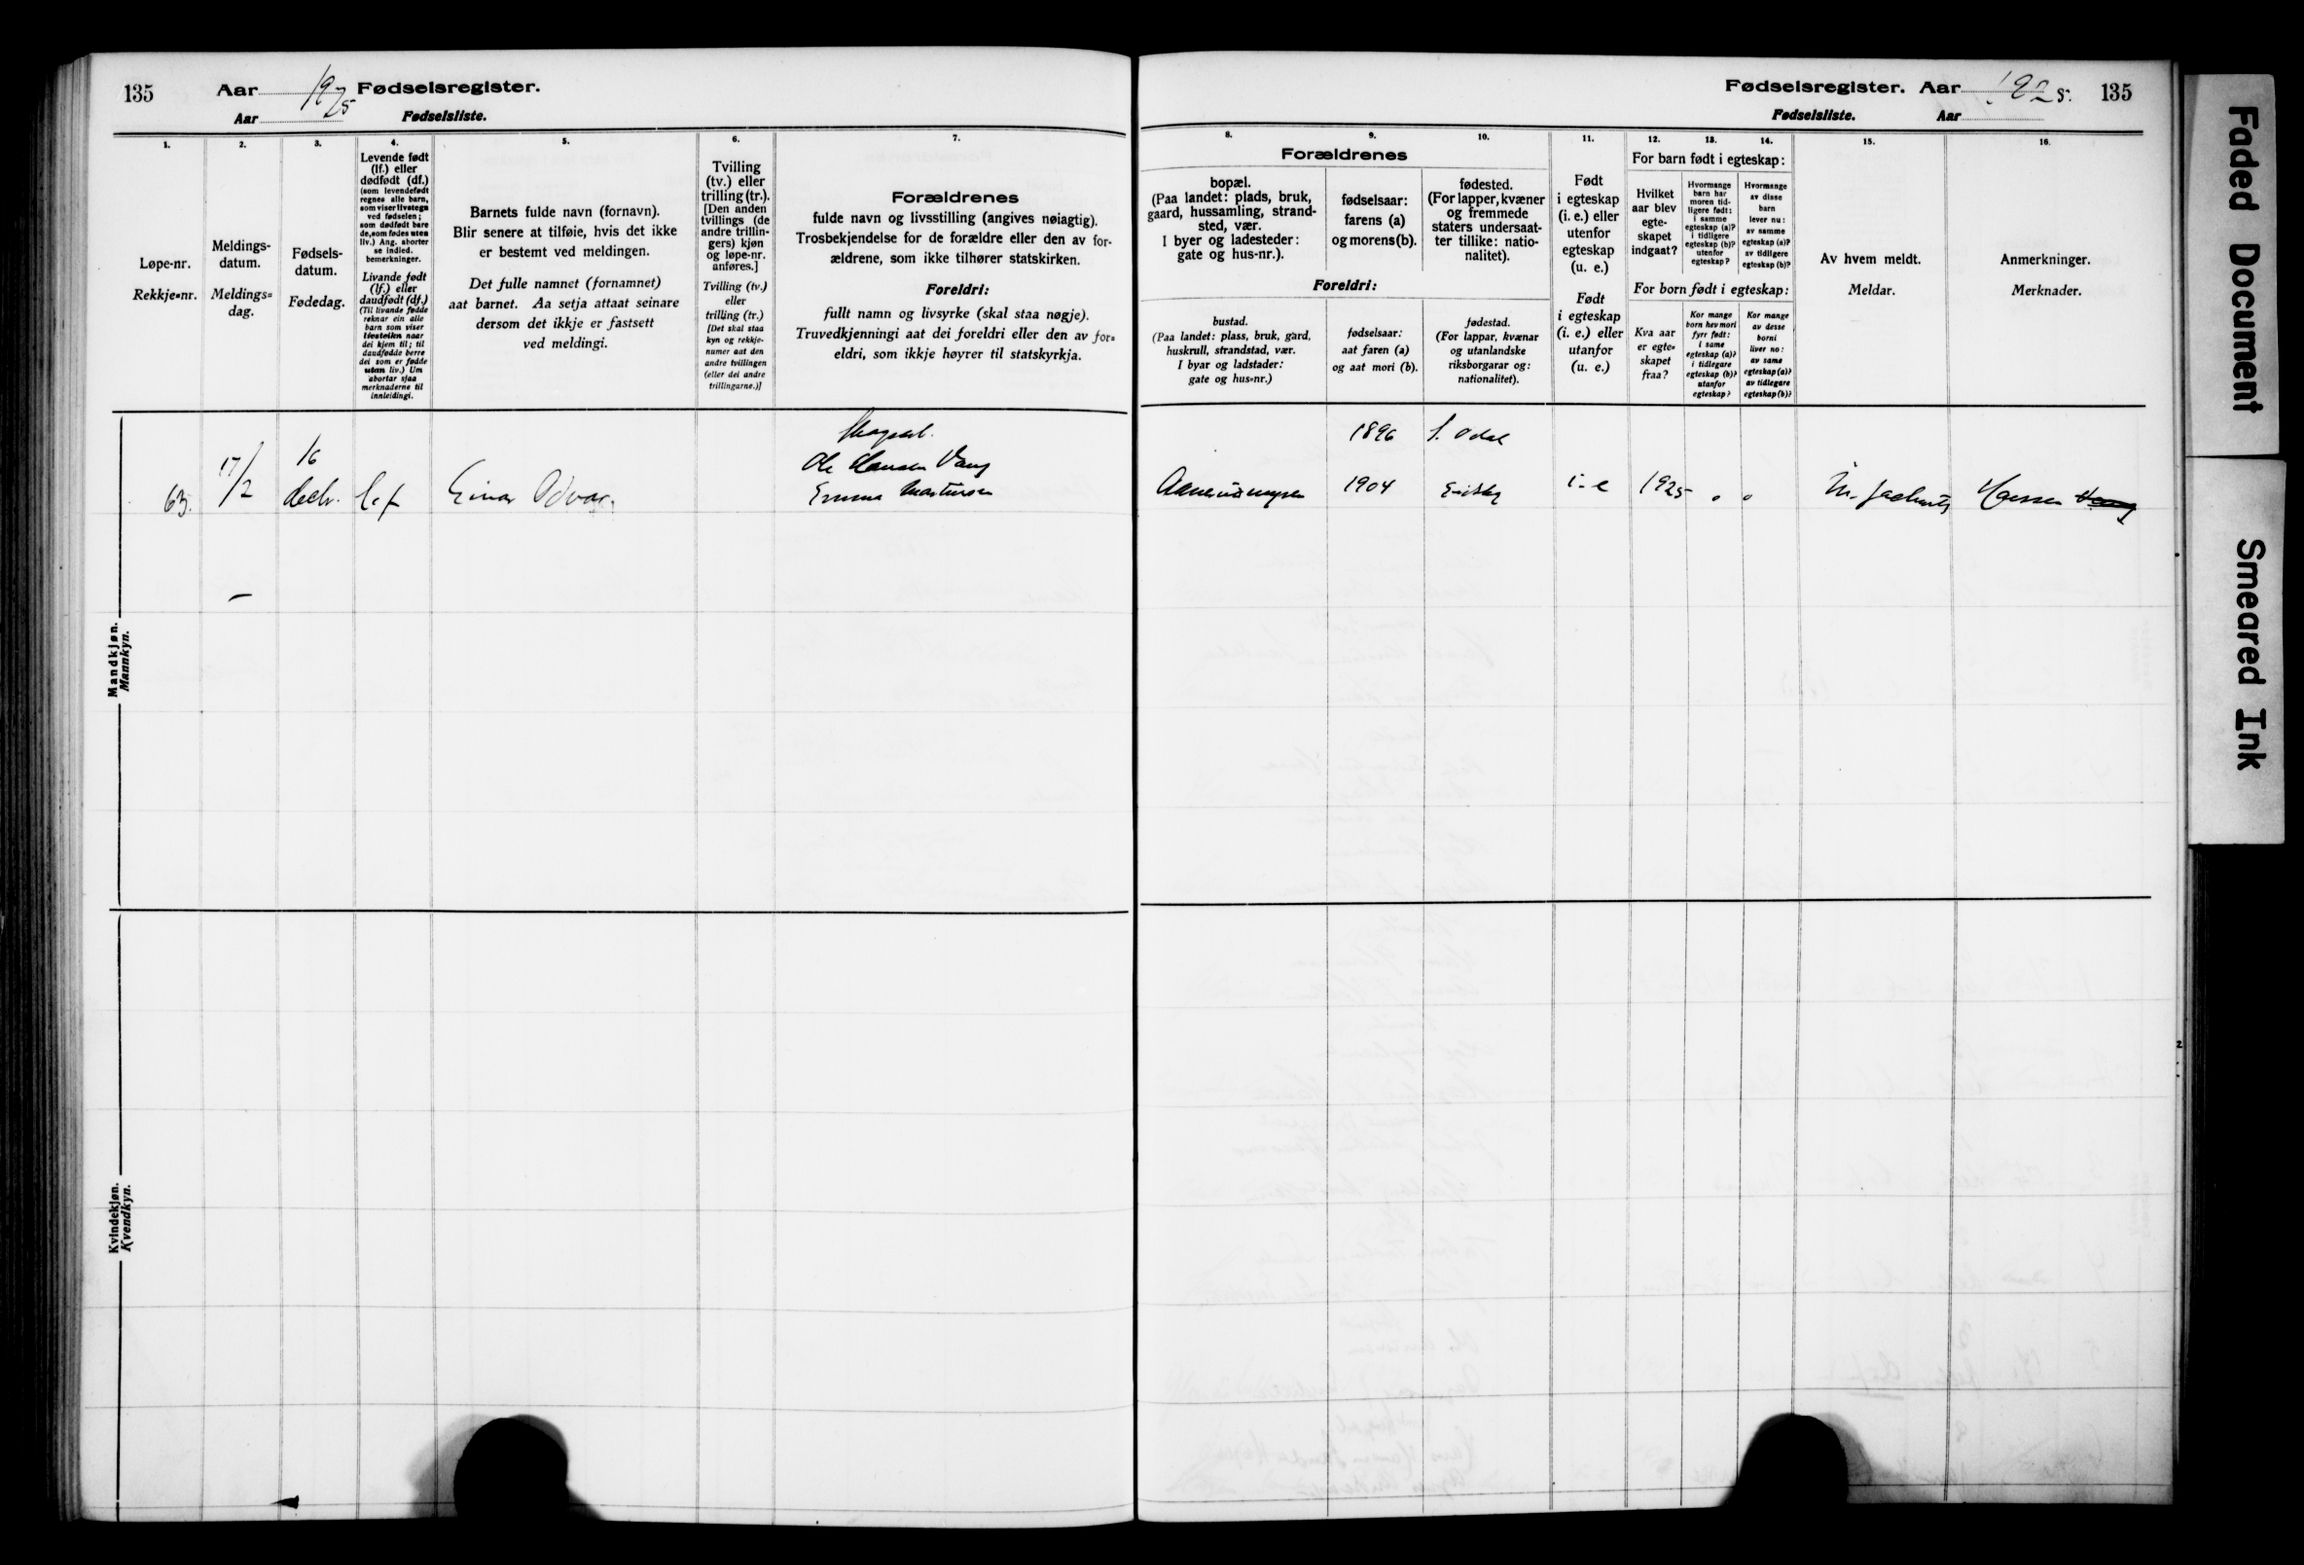 135 Aar 1925 Fødselsregister.
Aar Fødselsliste.
1.
Løpe-nr.
Rekkje=nr.
2.
Meldings-
datum.
Meldings=
dag.
3.
Fødsels-
datum.
Fødedag.
4.
Levende født
(lf.) eller
dødfødt (df.)
(som levendefødt
regnes alle barn,
som viser livstegn
ved fødselen;
som dødfødt bare
de, som fødes uten
liv.) Ang. aborter
se indled.
bemerkninger.
Livande født
(lf.) eller
daudfødt (df.)
(Til livande fødde
reknar ein alle
barn som viser
livsteikn naar
dei kjem til; til
daudfødde berre
dei som er fødde
utan liv.) Um
abortar sjaa
merknaderne til
innleidingi.
5.
Barnets fulde navn (fornavn).
Blir senere at tilføie, hvis det ikke
er bestemt ved meldingen.
Det fulle namnet (fornamnet)
aat barnet. Aa setja attaat seinare
dersom det ikkje er fastsett
ved meldingi.
6.
Tvilling
(tv.) eller
trilling (tr.).
[Den anden
tvillings (de
andre trillin-
gers) kjøn
og løpe-nr.
anføres.]
Tvilling (tv.)
eller
trilling (tr.)
[Det skal staa
kyn og rekkje-
numer aat den
andre tvillingen
(eller dei andre
trillingarne.)]
7.
Forældrenes
fulde navn og livsstilling (angives nøiagtig).
Trosbekjendelse for de forældre eller den av for-
ældrene, som ikke tilhører statskirken.
Foreldri:
fullt namn og livsyrke (skal staa nøgje).
Truvedkjenningi aat dei foreldri eller den av for=
eldri, som ikkje høyrer til statskyrkja.
Mandkjøn.
Mannkyn.
63. 17/2 16 decbr. l.f Einar Odvar.
Ole Hansen Vang
Emma Martinsen
Kvindekjøn.
Kvendkyn.
Fødselsregister. Aar 1925. 135
Fødselsliste. Aar
8. 9. 10.
Forældrenes
bopæl.
(Paa landet: plads, bruk,
gaard, hussamling, strand-
sted, vær.
I byer og ladesteder:
gate og hus-nr.).
fødselsaar:
farens (a)
og morens (b).
fødested.
(For lapper, kvæner
og fremmede
staters undersaat-
ter tillike: natio-
nalitet).
Foreldri:
bustad.
(Paa landet: plass, bruk, gard,
huskrull, strandstad, vær.
I byar og ladstader:
gate og hus=nr.)
fødselsaar:
aat faren (a)
og aat mori (b).
fødestad.
(For lappar, kvænar
og utanlandske
riksborgarar og:
nationalitet).
11.
Født
i egteskap
(i. e.) eller
utenfor
egteskap
(u. e.)
Født
i egteskap
(i. e.) eller
utanfor
(u. e.)
12. 13. 14.
For barn født i egteskap:
Hvilket
aar blev
egte-
skapet
indgaat?
Hvormange
barn har
moren tid-
ligere født:
i samme
egteskap (a)?
i tidligere
egteskap (b)?
utenfor
egteskap?
Hvormange
av disse
barn
lever nu:
av samme
egteskap (a)?
av tidligere
egteskap (b)?
For born født i egteskap:
Kva aar
er egte=
skapet
fraa?
Kor mange
born hev mori
fyrr født:
i same
egteskap (a)?
i tidlegare
egteskap (b)?
utanfor
egteskap?
Kor mange
av desse
borni
liver no:
av same
egteskap (a)?
av tidlegare
egteskap (b)?
15.
Av hvem meldt.
Meldar.
16.
Anmerkninger.
Merknader.
1896 S. Odal
1904 Eidskog i-e 1925 " " Hansen Vang
Faded Document
Smeared Ink